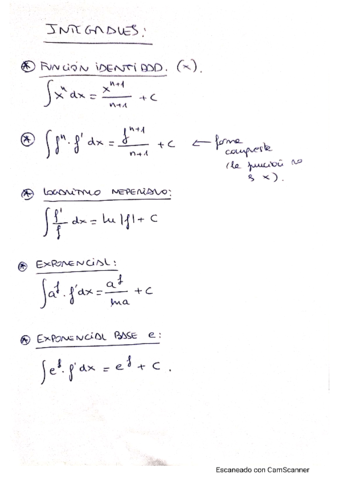 INTEGRALES:
* FUNCIÓN IDENTIDAD. (x).
∫xⁿ dx = xⁿ⁺¹/n+1 + C
* ∫fⁿ · f' dx = fⁿ⁺¹/n+1 + C ← forma
compuesta
(la función no
es x).
* LOGARITMO NEPERIANO:
∫ f'/f dx = ln |f| + C
* EXPONENCIAL:
∫a^f · f' dx = a^f/lna + C
* EXPONENCIAL BASE e:
∫e^f · f' dx = e^f + C.
Escaneado con CamScanner